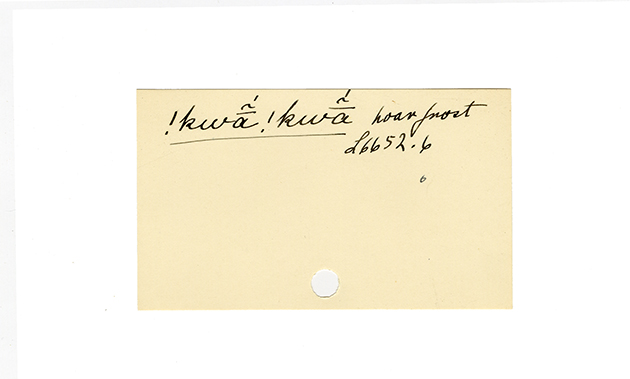 !kwã́̄ !kwã́̄ hoar frost
L6652.6
6